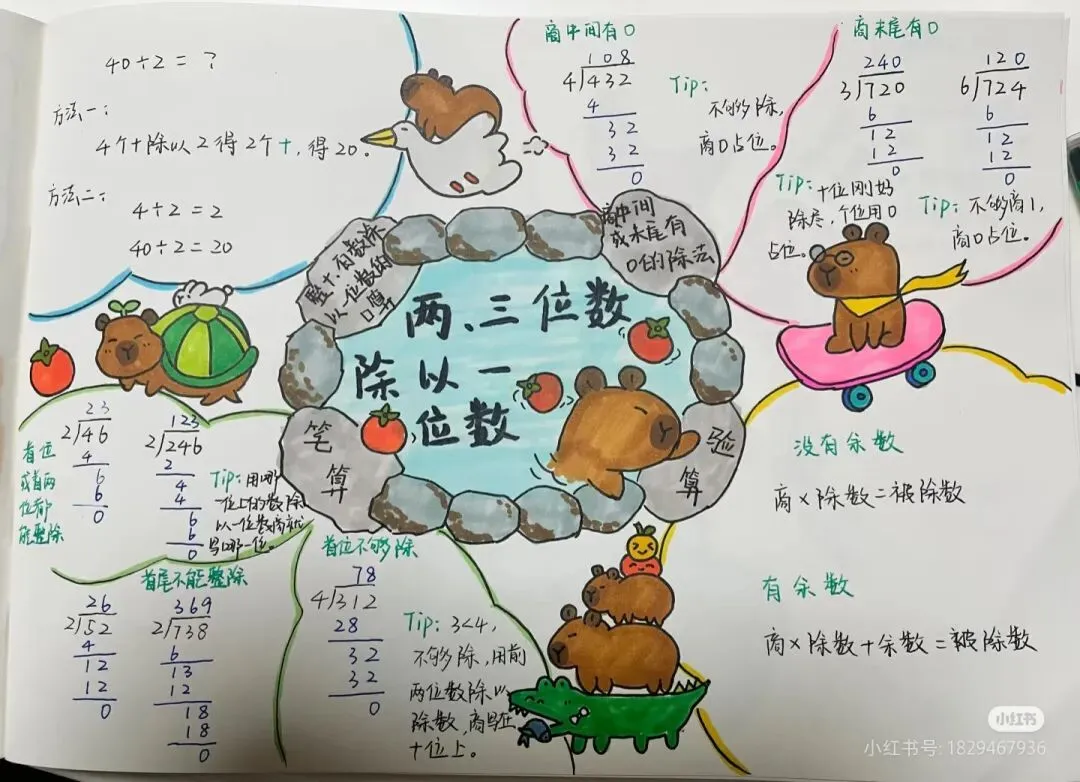 两、三位数
除以一
位数
整十、百数除
以一位数的
口算
40÷2=?
方法一：
4个十除以2得2个十，得20。
方法二：
4÷2=2
40÷2=20
商中间
或末尾有
0的除法
商中间有0
108
4432
4
32
32
0
Tip：
不够除，
商0占位。
商末尾有0
240
3720
6
12
12
0
Tip：十位刚好
除尽，个位用0
占位。
120
6724
6
12
12
0
Tip：不够商1，
商0占位。
笔
算
首位
或首两
位都
能整除
23
246
4
6
6
0
123
2246
2
4
4
6
6
0
Tip：用哪
一位上的数除
以一位数商就
写哪一位。
首尾不能整除
26
252
4
12
12
0
369
2738
6
13
12
18
18
0
首位不够除
78
4312
28
32
32
0
Tip：3<4，
不够除，用前
两位数除以
除数，商写在
十位上。
验
算
没有余数
商×除数=被除数
有余数
商×除数+余数=被除数
小红书
小红书号：1829467936